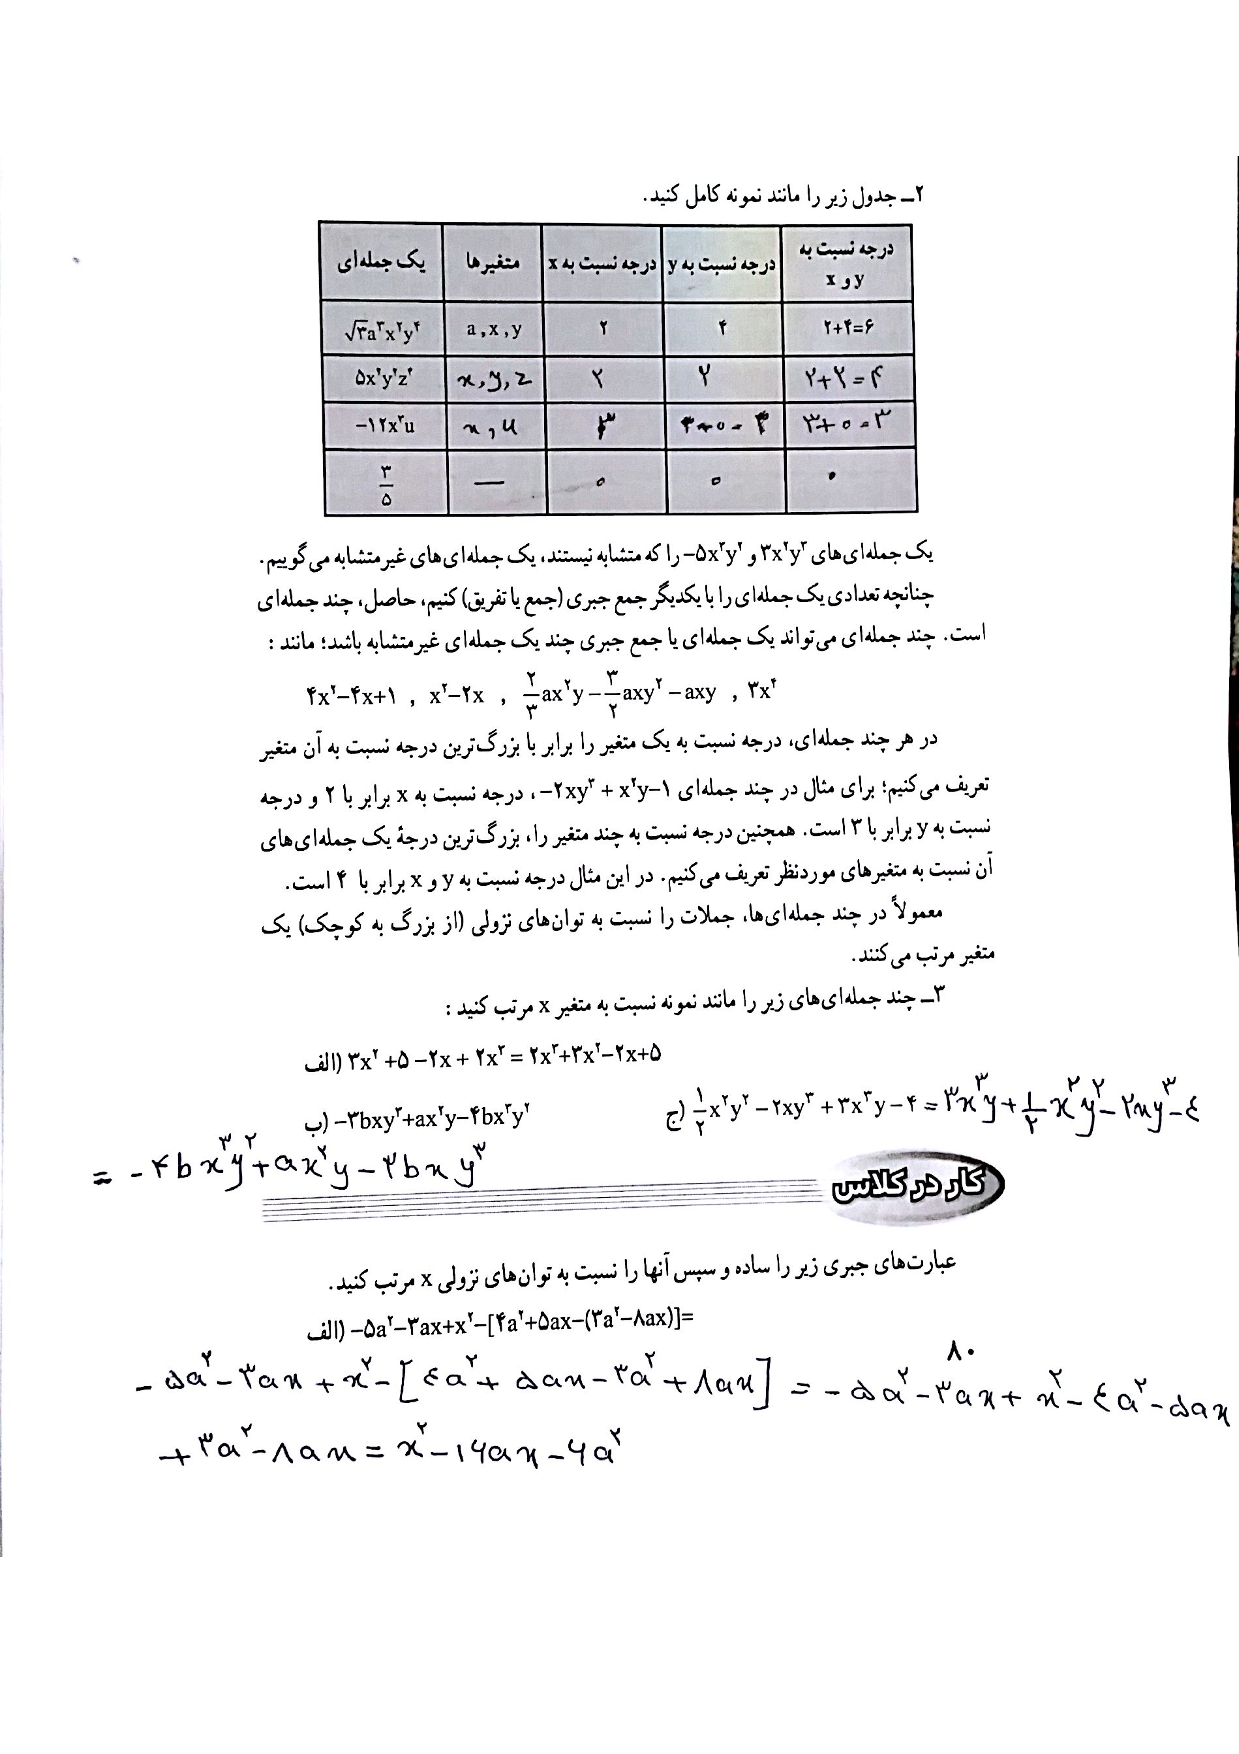 ۲ــ جدول زیر را مانند نمونه کامل کنید.
یک جمله‌ای | متغیرها | درجه نسبت به x | درجه نسبت به y | درجه نسبت به y و x
√۳a³x²y⁴ | a , x , y | ۲ | ۴ | ۲+۴=۶
۵x²y²z² | x, y, z | ۲ | ۲ | ۲+۲=۴
−۱۲x³u | x, u | ۳ | ۳+۰=۳
۳/۵ | — | ۰ | ۰ | ۰
یک جمله‌ای‌های ۳x²y³ و −۵x³y² را که متشابه نیستند، یک جمله‌ای‌های غیرمتشابه می‌گوییم.
چنانچه تعدادی یک جمله‌ای را با یکدیگر جمع جبری (جمع یا تفریق) کنیم، حاصل، چند جمله‌ای
است. چند جمله‌ای می‌تواند یک جمله‌ای یا جمع جبری چند یک جمله‌ای غیرمتشابه باشد؛ مانند :
۴x²−۴x+۱ , x²−۲x , ۲/۳ax²y − ۳/۲axy² − axy , ۳x⁴
در هر چند جمله‌ای، درجه نسبت به یک متغیر را برابر با بزرگ‌ترین درجه نسبت به آن متغیر
تعریف می‌کنیم؛ برای مثال در چند جمله‌ای −۲xy³ + x²y−۱، درجه نسبت به x برابر با ۲ و درجه
نسبت به y برابر با ۳ است. همچنین درجه نسبت به چند متغیر را، بزرگ‌ترین درجهٔ یک جمله‌ای‌های
آن نسبت به متغیرهای موردنظر تعریف می‌کنیم. در این مثال درجه نسبت به y و x برابر با ۴ است.
معمولاً در چند جمله‌ای‌ها، جملات را نسبت به توان‌های نزولی (از بزرگ به کوچک) یک
متغیر مرتب می‌کنند.
۳ــ چند جمله‌ای‌های زیر را مانند نمونه نسبت به متغیر x مرتب کنید :
الف) ۳x² +۵ −۲x + ۲x³ = ۲x³+۳x²−۲x+۵
ب) −۳bxy³+ax²y−۴bx³y²
= −۴bx³y²+ax²y−۳bxy³
ج) ۱/۲x²y² − ۲xy³ + ۳x³y − ۴ = ۳x³y + ۱/۲x²y² − ۲xy³ − ٤
کار در کلاس
عبارت‌های جبری زیر را ساده و سپس آنها را نسبت به توان‌های نزولی x مرتب کنید.
الف) −۵a²−۳ax+x²−[۴a²+۵ax−(۳a²−۸ax)]=
۸۰
−۵a²−۳ax+x²−[٤a²+۵ax−۳a²+۸ax] = −۵a²−۳ax+x²−٤a²−۵ax
+۳a²−۸ax = x²−۱۶ax−۶a²